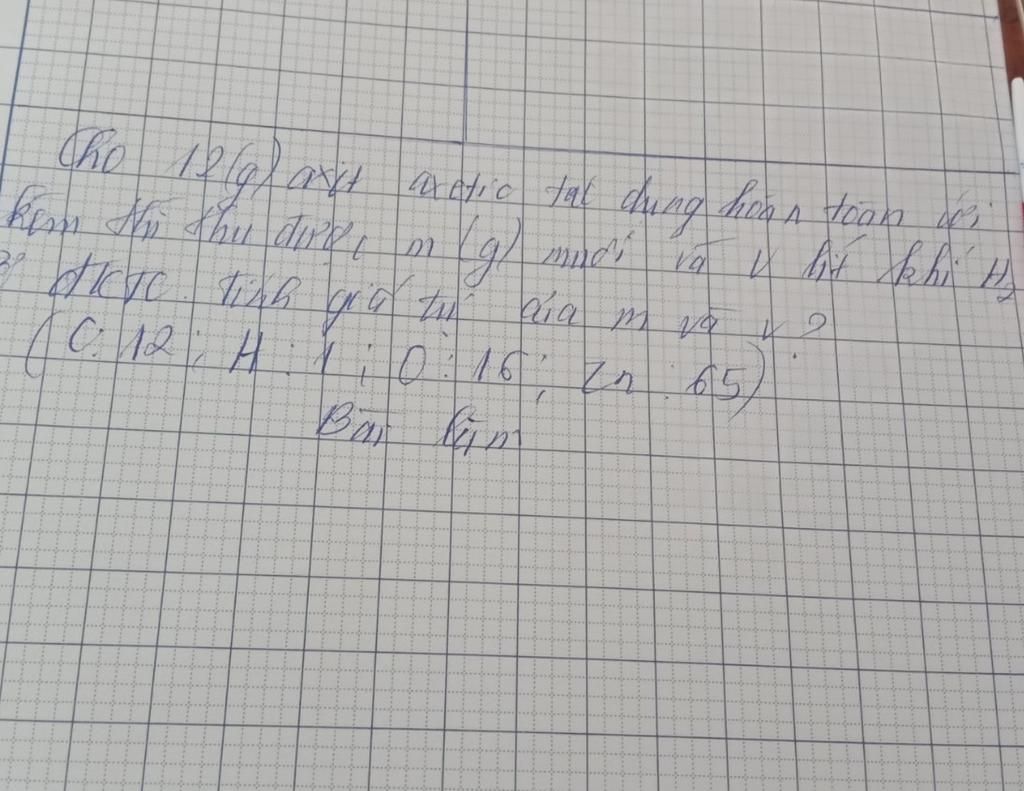 Cho 12(g) axit axetic tác dụng hoàn toàn với
kẽm thì thu được m (g) muối và V lít khí H2
ở đktc. tính giá trị của m và V?
(C: 12; H: 1; O: 16; Zn: 65)
Bài làm